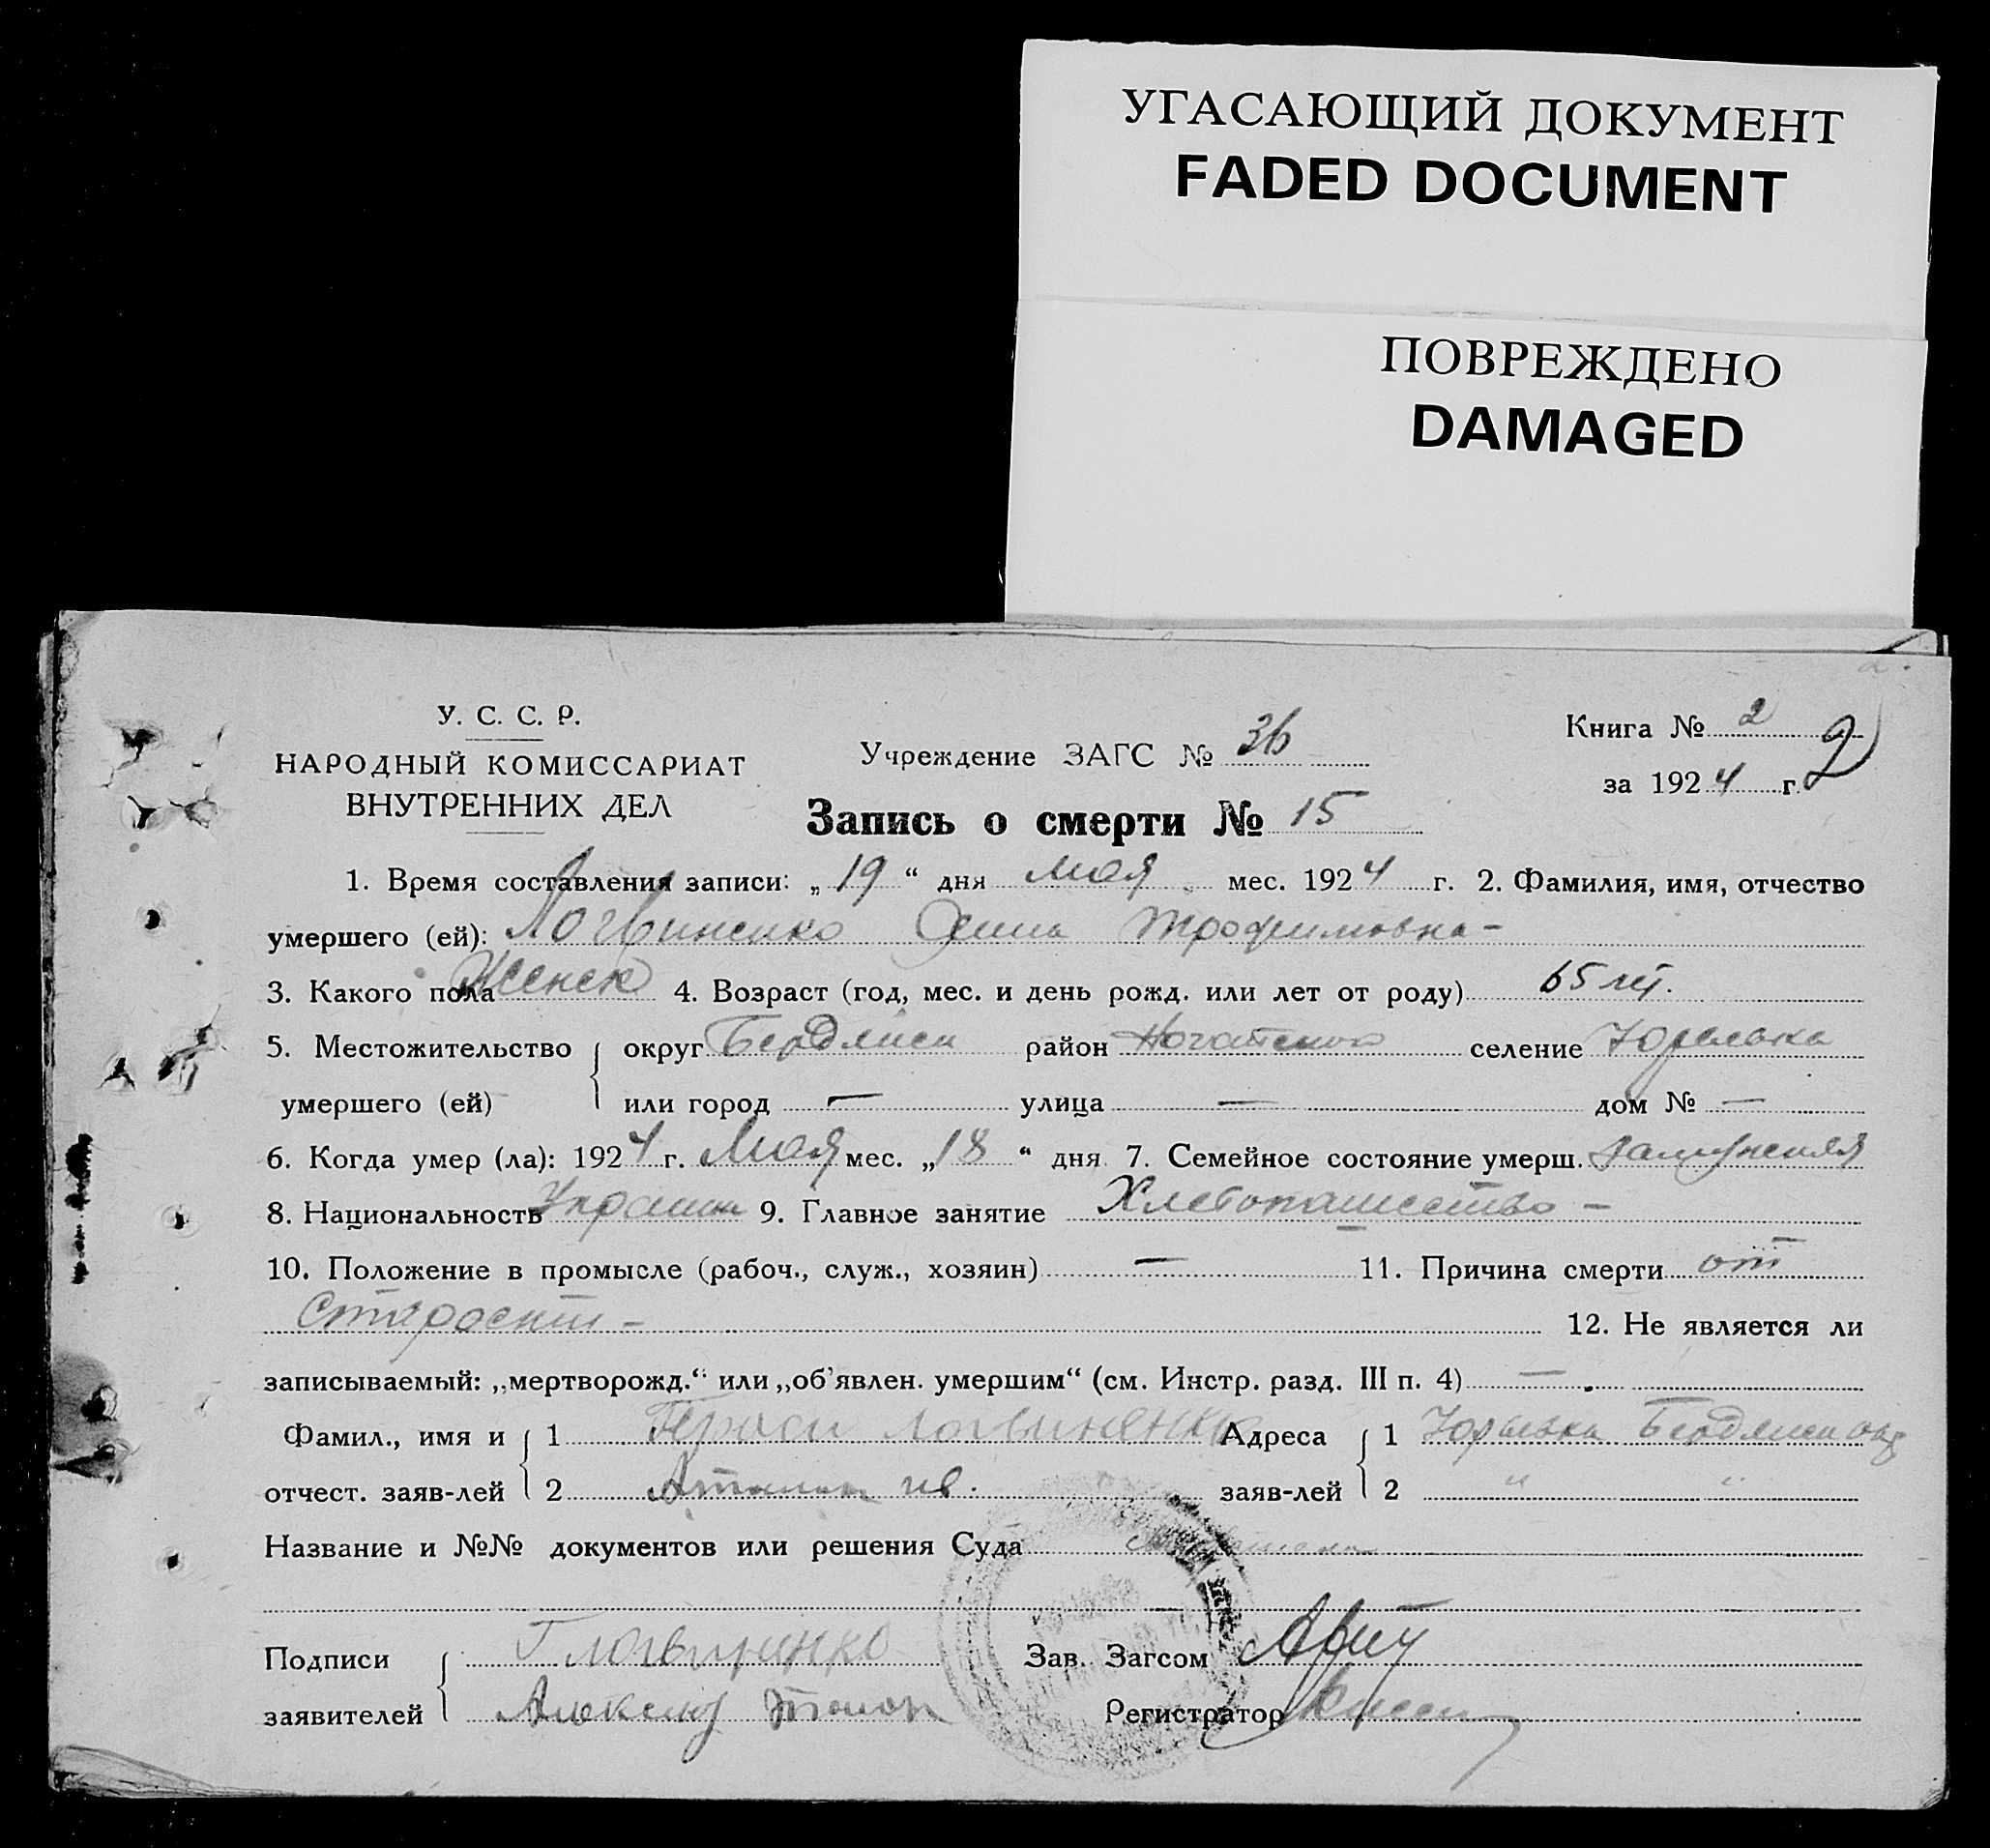 УГАСАЮЩИЙ ДОКУМЕНТ
FADED DOCUMENT
ПОВРЕЖДЕНО
DAMAGED
У. С. С. Р.
НАРОДНЫЙ КОМИССАРИАТ
ВНУТРЕННИХ ДЕЛ
Учреждение ЗАГС № 36
Книга № 2 2
за 1924 г.
Запись о смерти № 15
1. Время составления записи: „19“ дня мая мес. 1924 г. 2. Фамилия, имя, отчество
умершего (ей): Логвиненко Трофимовна -
3. Какого пола Женск 4. Возраст (год, мес. и день рожд. или лет от роду) 65 лет.
5. Местожительство округ Бердянск район селение Юрьевка
умершего (ей) или город — улица — дом № —
6. Когда умер (ла): 1924 г. Мая мес. „18“ дня 7. Семейное состояние умерш. замужняя
8. Национальность Украин 9. Главное занятие Хлебопашество -
10. Положение в промысле (рабоч., служ., хозяин) — 11. Причина смерти от
старости -
12. Не является ли
записываемый: „мертворожд.“ или „об'явлен. умершим“ (см. Инстр. разд. III п. 4) —
Фамил., имя и 1 Адреса 1 Юрьевка
отчест. заяв-лей 2 заяв-лей 2 " "
Название и №№ документов или решения Суда
Подписи Зав. Загсом
заявителей Регистратор